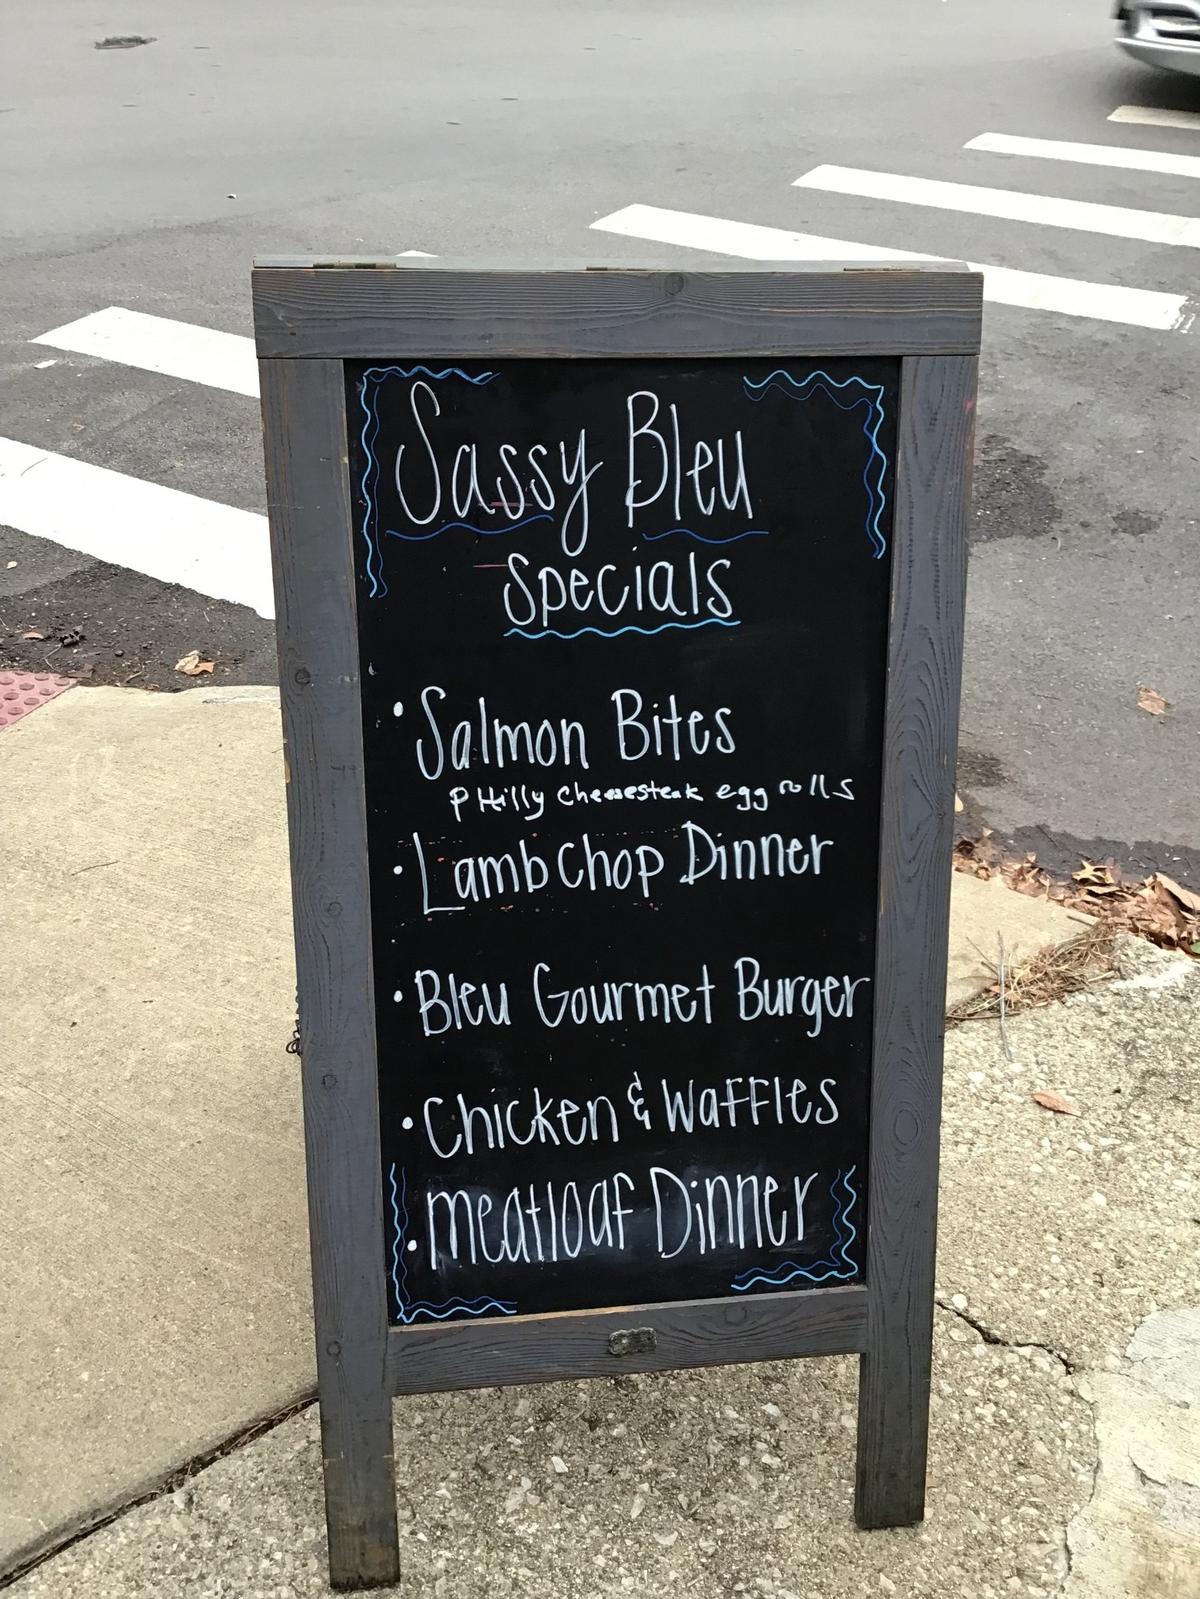 Sassy Bleu
Specials
• Salmon Bites
PHilly cheesesteak egg rolls
• Lamb Chop Dinner
• Bleu Gourmet Burger
• Chicken & Waffles
• meatloaf Dinner